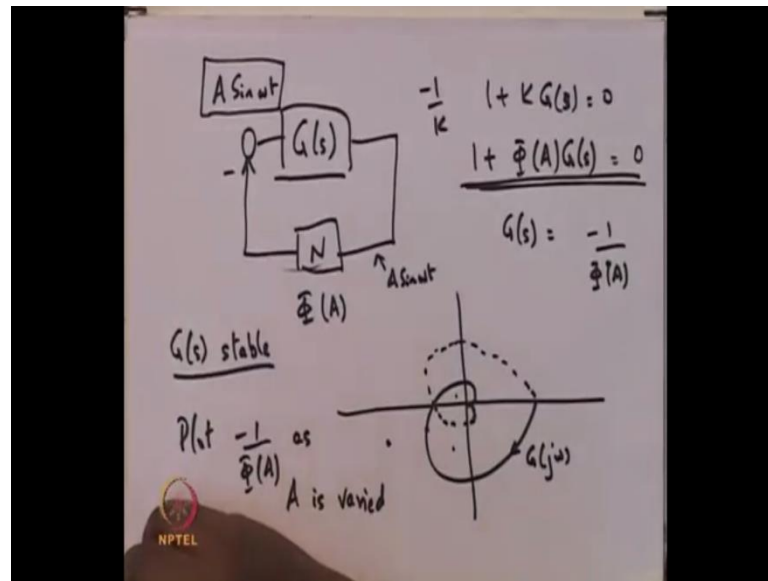 A Sin ωt
G(s)
-
N
A Sin ωt
Φ(A)
-1/K 1 + K G(s) = 0
1 + Φ(A)G(s) = 0
G(s) = -1/Φ(A)
G(s) stable
Plot -1/Φ(A) as
A is varied
G(jω)
NPTEL